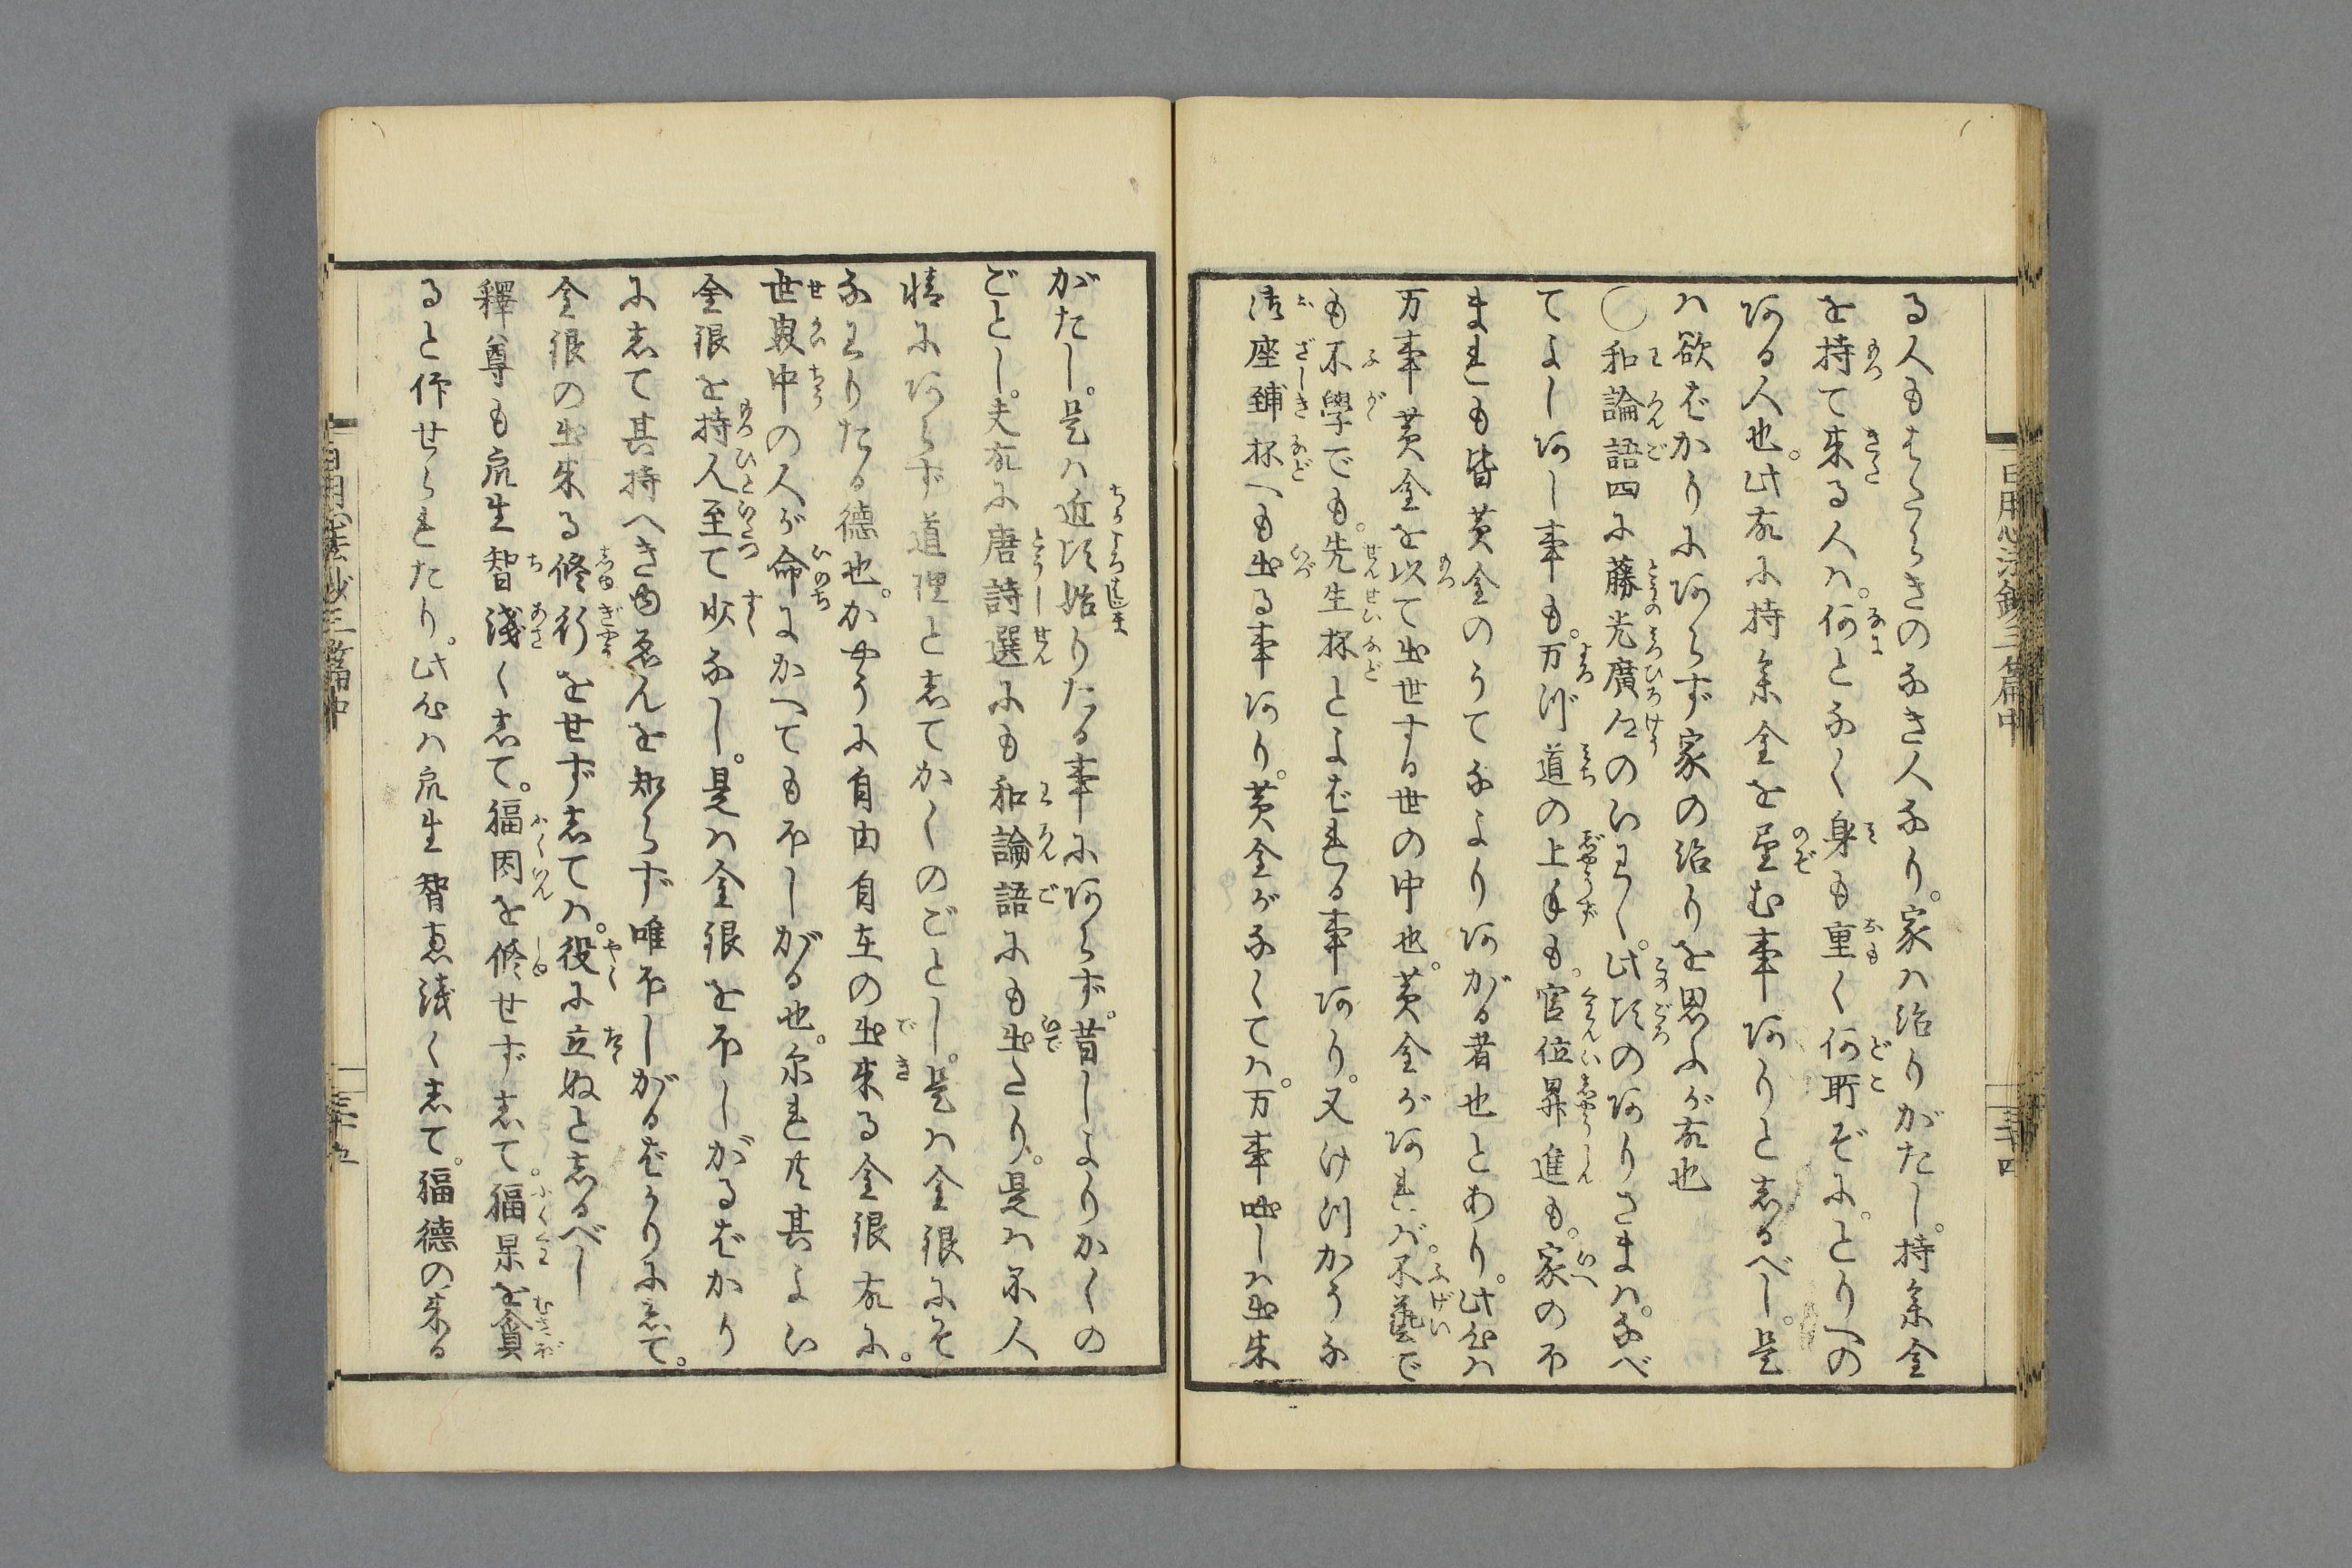 日用心法鈔三篇中
三十四
る人もはたらきのなき人なり。家ハ治りがたし。持参金
を持て来る人ハ。何となく身も重く何所ぞに。とりへの
ある人也。此故に持参金を望む事ありと志るべし。是
ハ欲ばかりにあらず家の治りを思ふが故也
〇和論語四に藤光廣卿のいわく。此頃のありさまハ。なべ
てよしあし事も。万づ道の上手も。官位昇進も。家の不
まれも皆黄金のうてなよりあがる者也とあり。此心ハ
万事黄金を以て出世する世の中也。黄金があれバ。不藝で
も不學でも。先生杯とよばれる事あり。又けつかうな
御座鋪杯へも出る事あり。黄金がなくてハ。万事咄しハ出来
がたし。是ハ近頃始りたる事にあらず。昔しよりかくの
ごとし。夫故に唐詩選にも和論語にも出たり。是ハ不人
情にあらず道理と志てかくのごとし。是ハ金銀にそ
なわりたる徳也。かやうに自由自在の出来る金銀故に。
世界中の人が命にかへても不しがる也。尓れ共其よい
金銀を持人至て少なし。是ハ金銀を不しがるばかり
に志て其持へき因ゑんを知らず唯不しがるばかりに志て。
金銀の出来る修行をせず志てハ。役に立ぬと志るべし
釋尊も衆生智淺く志て。福因を修せず志て。福果を貪
ると仰せられたり。此心ハ衆生智恵浅く志て。福徳の来る
日用心法鈔三篇中
三十五